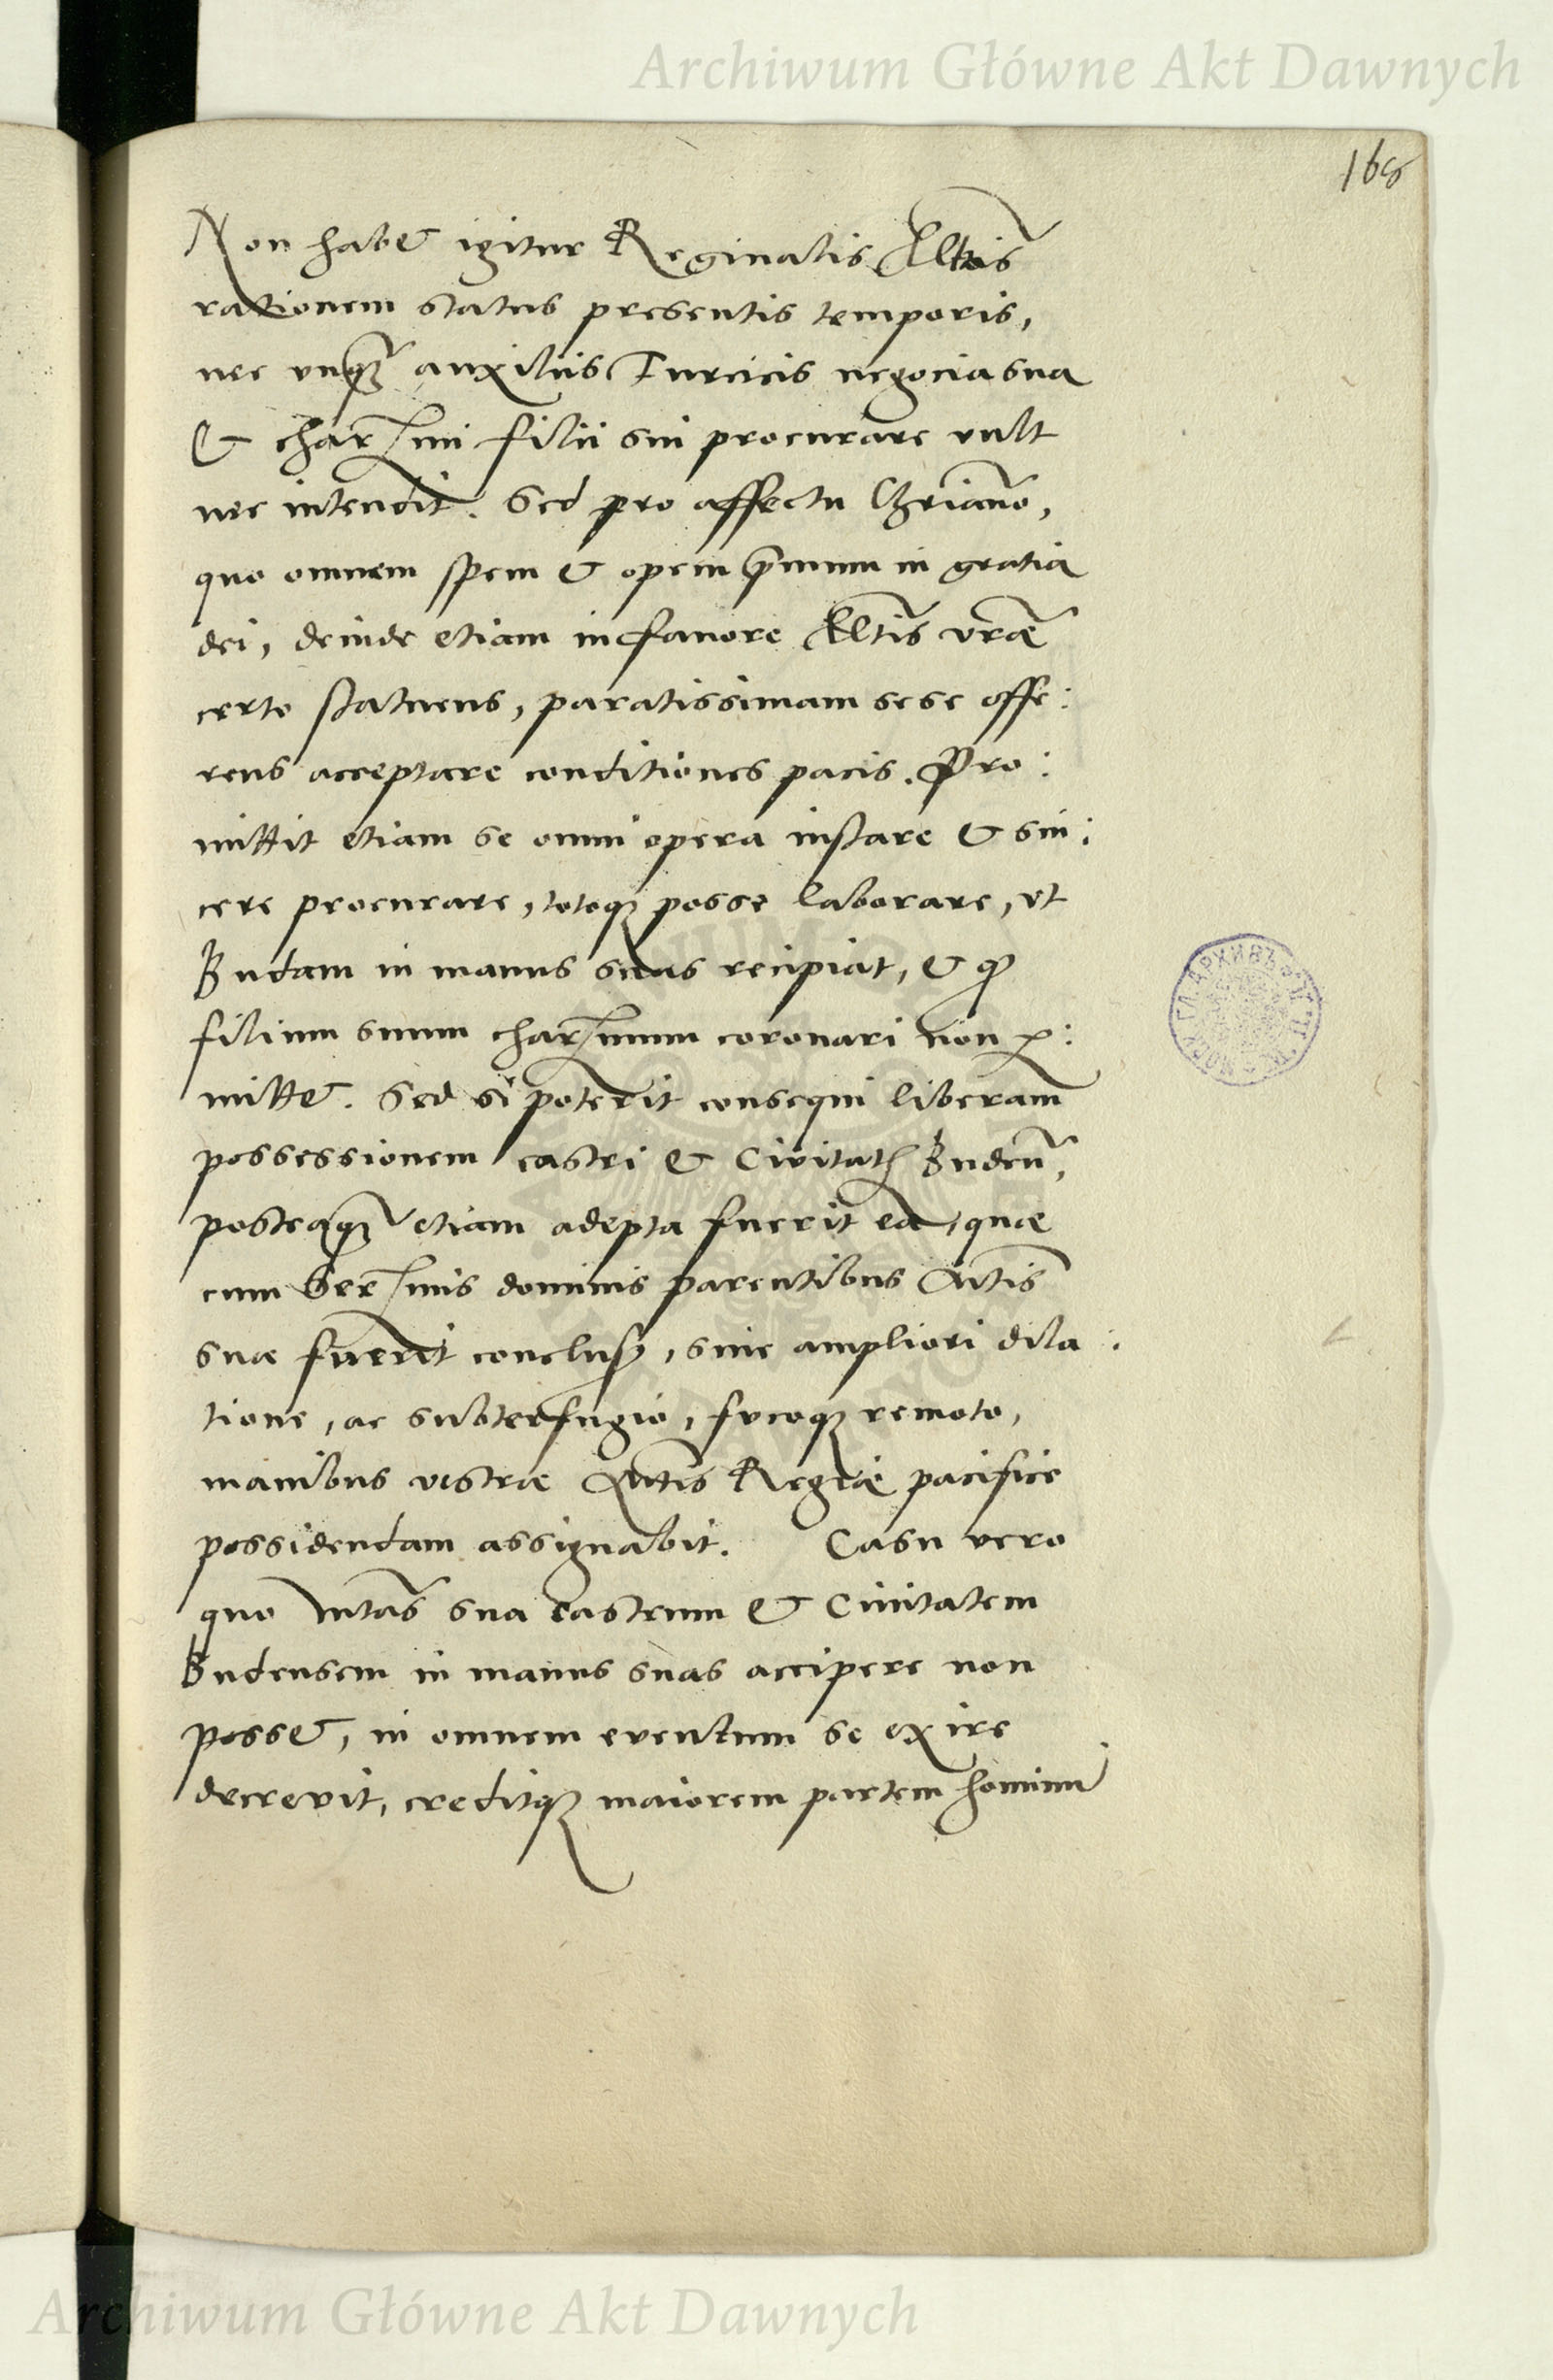 Archiwum Główne Akt Dawnych
168
Non habet igitur Reginalis Altis
rationem status presentis temporis,
nec unq̃ auxiliis Turcicis negocia sua
et charissimi filii sui procurare vult
nec intendit. Sed pro affectu Chriano,
quo omnem spem et opem primum in gratia
dei, deinde etiam in favore Altis vrae
certo statuens, paratissimam sese offe:
rens acceptare conditiones pacis. Pro:
mittit etiam se omni opera instare et sin:
cere procurare, totoq; posse laborare, ut
Budam in manus suas recipiat, et q
filium suum charissimum coronari non per:
mittet. Sed si poterit consequi liberam
possessionem castri et Civitatis Buden,
posteaq̃ etiam adepta fuerit ea, quae
cum Serssimis dominis parentibus Mtis
suae fuerint conclusa, sine ampliori dila:
tione, ac subterfugio, fucoq; remoto,
manibus vestrae Mtis Regiae pacifice
possidendam assignabit. Casu vero
quo Mtas sua castrum et Civitatem
Budensem in manus suas accipere non
posset, in omnem eventum se exire
decrevit, creditq; maiorem partem hominu
Archiwum Główne Akt Dawnych